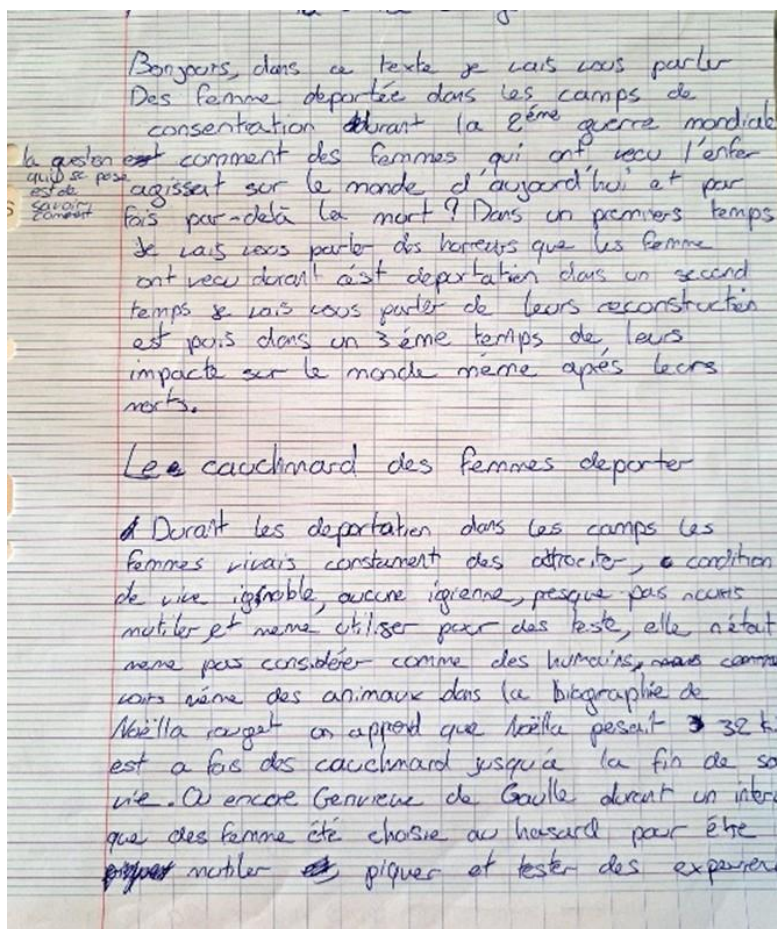 Bonjours, dans ce texte je vais vous parler
Des femme deportée dans les camps de
consentration durant la 2éme guerre mondiale
la question est comment des femmes qui ont vecu l'enfer
qui se pose
est de
savoir
comment
agissent sur le monde d'aujourd'hui et par
fois par-delà la mort ? Dans un premiers temps
Je vais vous parler des horreurs que les femme
ont vecu durant cést deportation dans un second
temps je vais vous parler de leurs reconstruction
est puis dans un 3éme temps de leurs
impacte sur le monde même aprés leurs
morts.
Les cauchmard des femmes deporter
Durant les deportation dans les camps les
femmes vivais constament des attrociter, condition
de vive ignoble, aucune igienne, presque pas nourris
mutiler et meme utiliser pour des teste, elle n'était
meme pas considérer comme des humains, comme
voirs même des animaux dans la biographie de
Noëlla rouget on apprend que Noëlla pesait 32 k
est a fais des cauchmard jusqu'a la fin de sa
vie. Ou encore Genvieve de Gaulle durant un inter
que des femme été choisie au hasard pour être
mutiler piquer et tester des experien